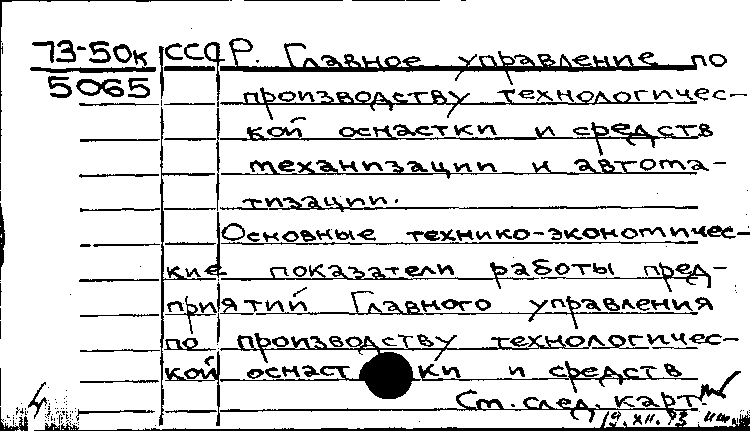 73-50к СССР. Главное управление по
5065 производству технологичес-
кой оснастки и средств
механизации и автома-
тизации.
Основные технико-экономичес-
кие показатели работы пред-
приятий Главного управления
по производству технологичес-
кой оснастки и средств
См. след. карт.
19.XII.73